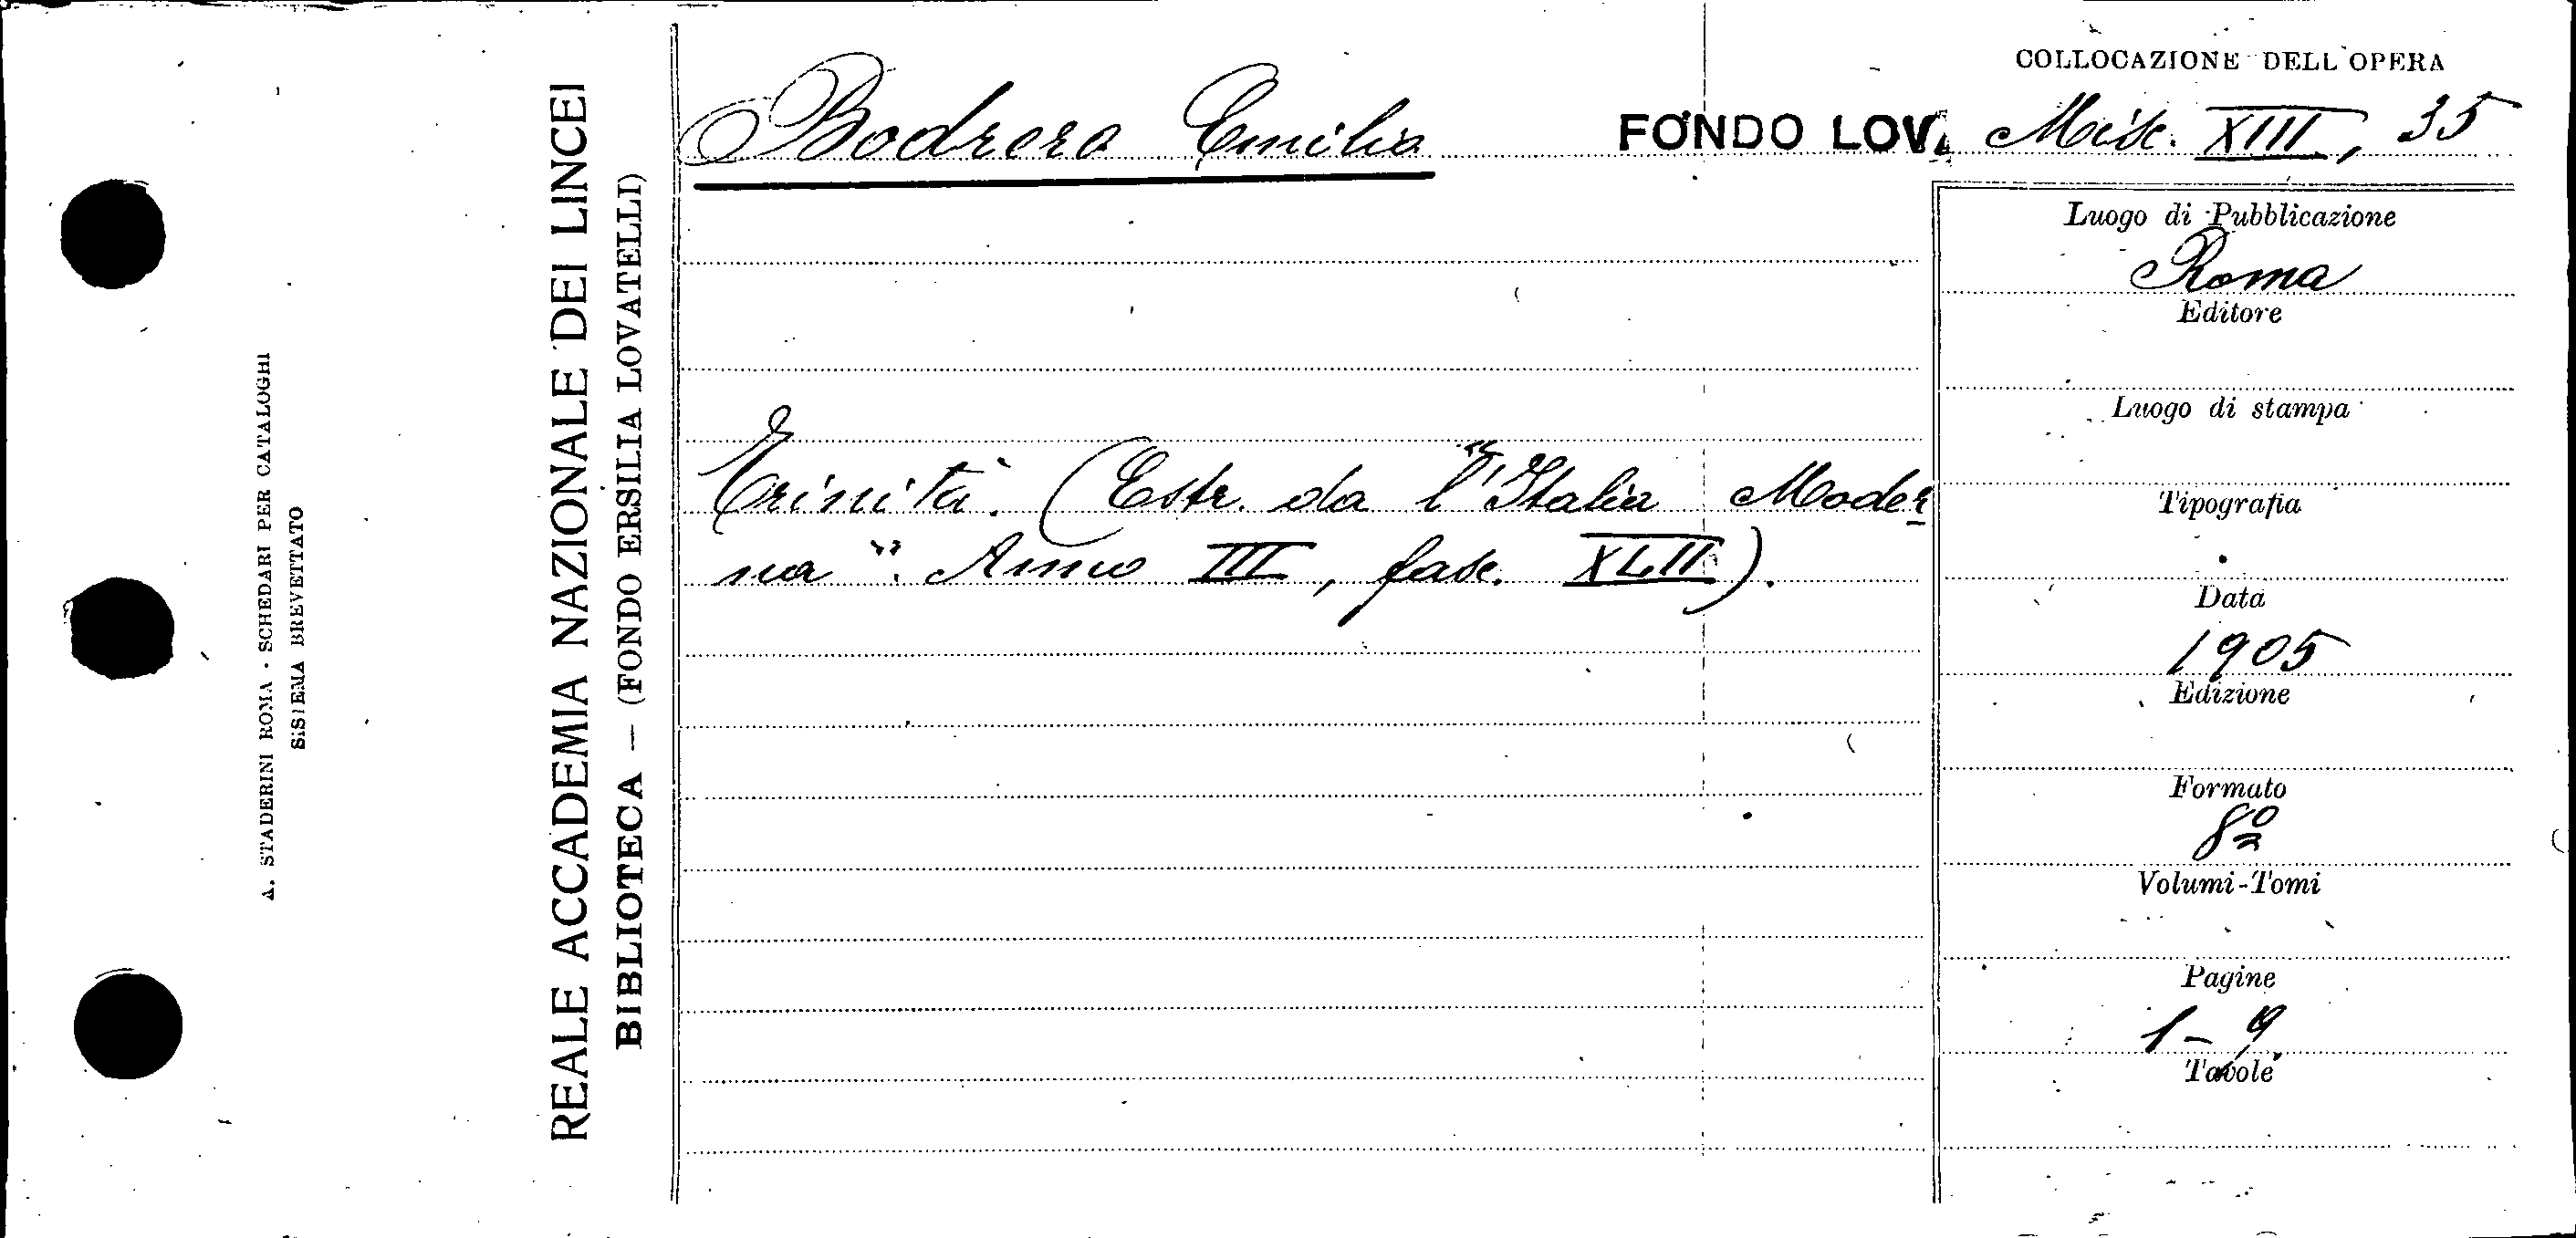 COLLOCAZIONE DELL'OPERA
Bodrero Emilio
FONDO LOV. Misc. XIII, 35
Trinità. (Estr. da l'"Italia Moder
na". Anno III, fasc. XLII).
Luogo di Pubblicazione
Roma
Editore
Luogo di stampa
Tipografia
Data
1905
Edizione
Formato
8º
Volumi-Tomi
Pagine
1-9
Tavole
REALE ACCADEMIA NAZIONALE DEI LINCEI
BIBLIOTECA — (FONDO ERSILIA LOVATELLI)
A. STADERINI ROMA - SCHEDARI PER CATALOGHI
SISTEMA BREVETTATO